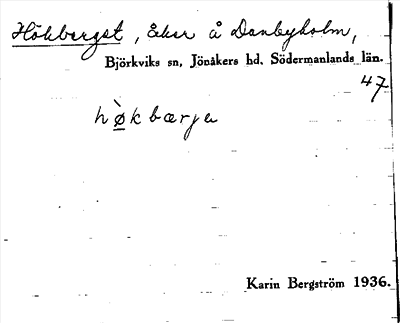 Hökberget, åker å Danbyholm,
Björkviks sn, Jönåkers hd, Södermanlands län.
47
hø̀kbærjə
Karin Bergström 1936.